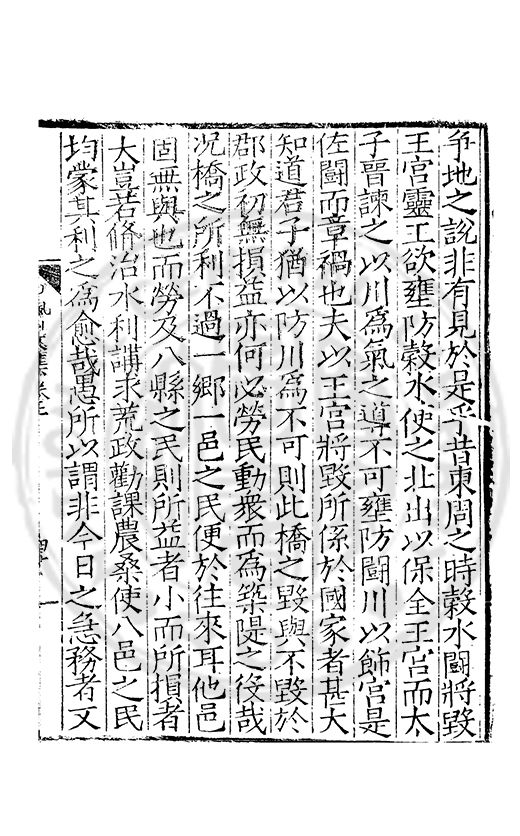 爭地之說非有見於是乎昔東周之時穀水鬬將毀
王宮靈王欲壅防穀水使之北出以保全王宮而太
子晉諫之以川為氣之導不可壅防鬬川以飾宮是
佐鬬而章禍也夫以王宮將毀所係於國家者甚大
知道君子猶以防川為不可則此橋之毀與不毀於
郡政初無損益亦何必勞民動衆而為築隄之役哉
況橋之所利不過一鄉一邑之民便於往來耳他邑
固無與也而勞及八縣之民則所益者小而所損者
大豈若脩治水利講求荒政勸課農桑使八邑之民
均蒙其利之為愈哉愚所以謂非今日之急務者又